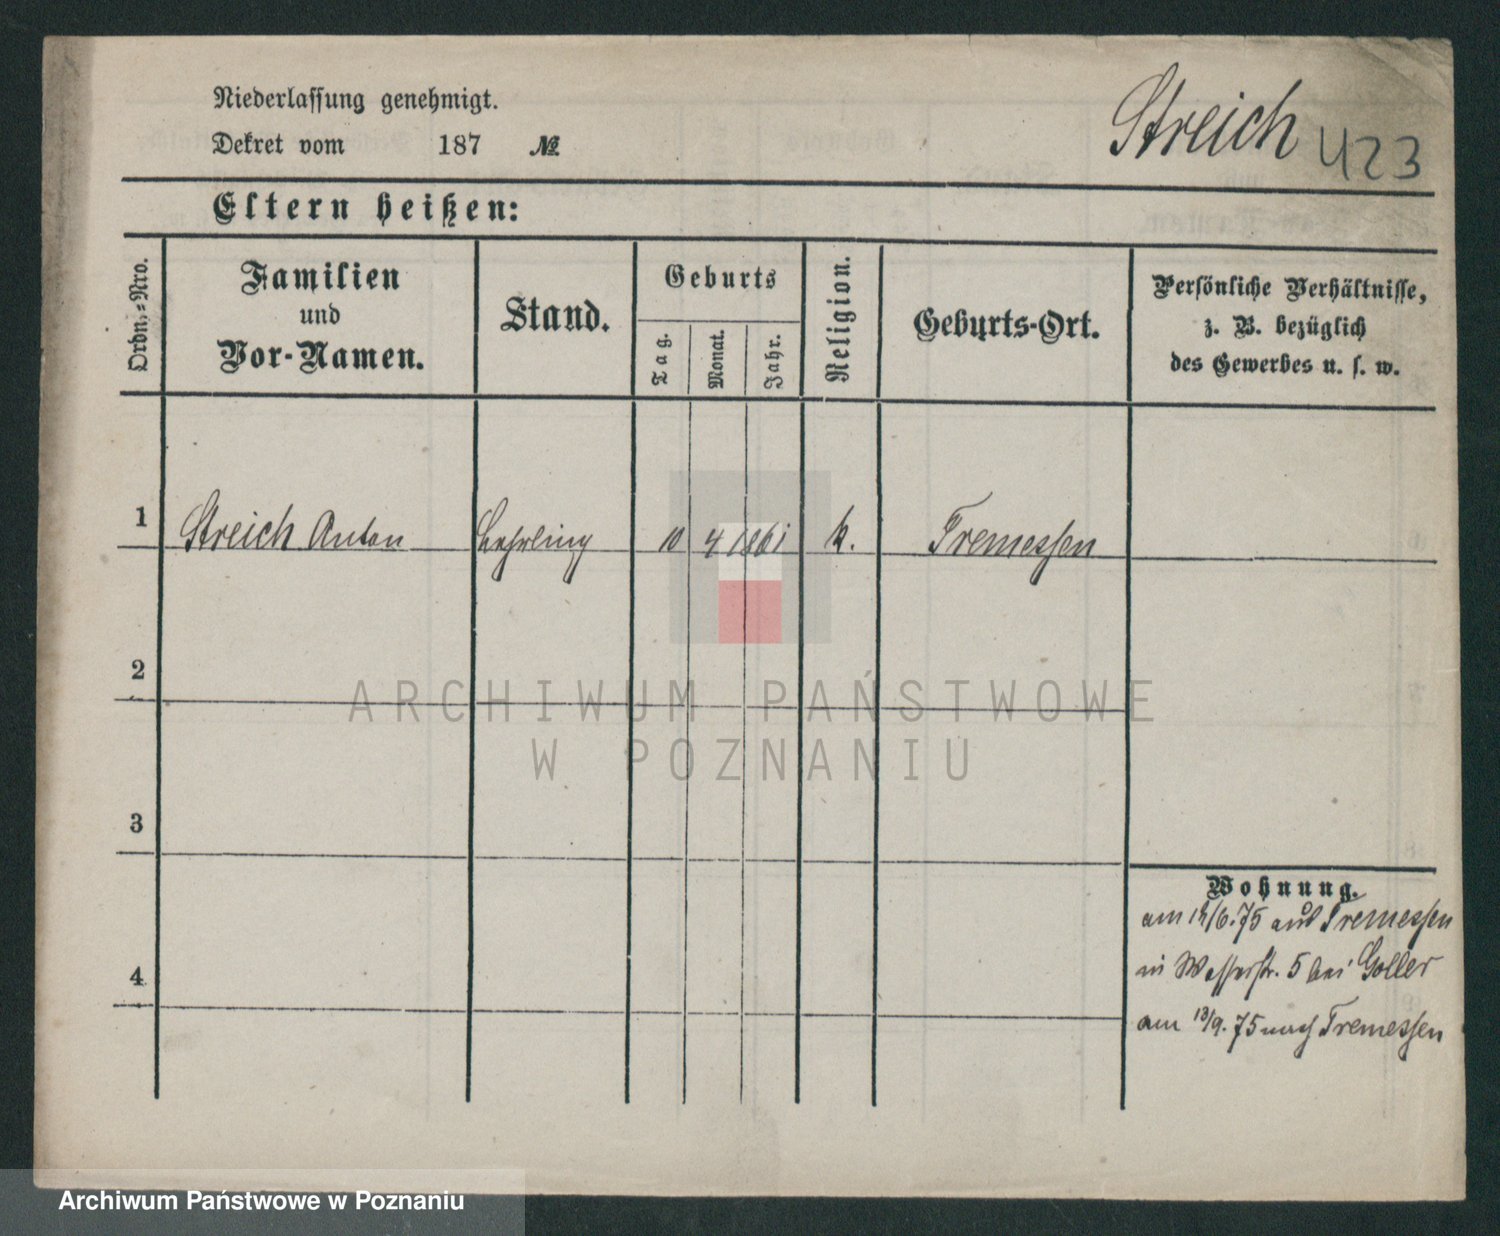 Niederlassung genehmigt.
Dekret vom 187 №
Streich 423
Eltern heißen:
Ordn.=Nro.
Familien
und
Vor-Namen.
Stand.
Geburts
Tag.
Monat.
Jahr.
Religion.
Geburts-Ort.
Persönliche Verhältnisse,
z. B. bezüglich
des Gewerbes u. s. w.
1 Streich Anton Lehrling 10 4 1861 k. Tremessen
2
ARCHIWUM PAŃSTWOWE
W POZNANIU
3
Wohnung.
am /6.75 aus Tremessen
in Wasserstr. 5 bei Goller
4
am 13/9.75 nach Tremessen
Archiwum Państwowe w Poznaniu